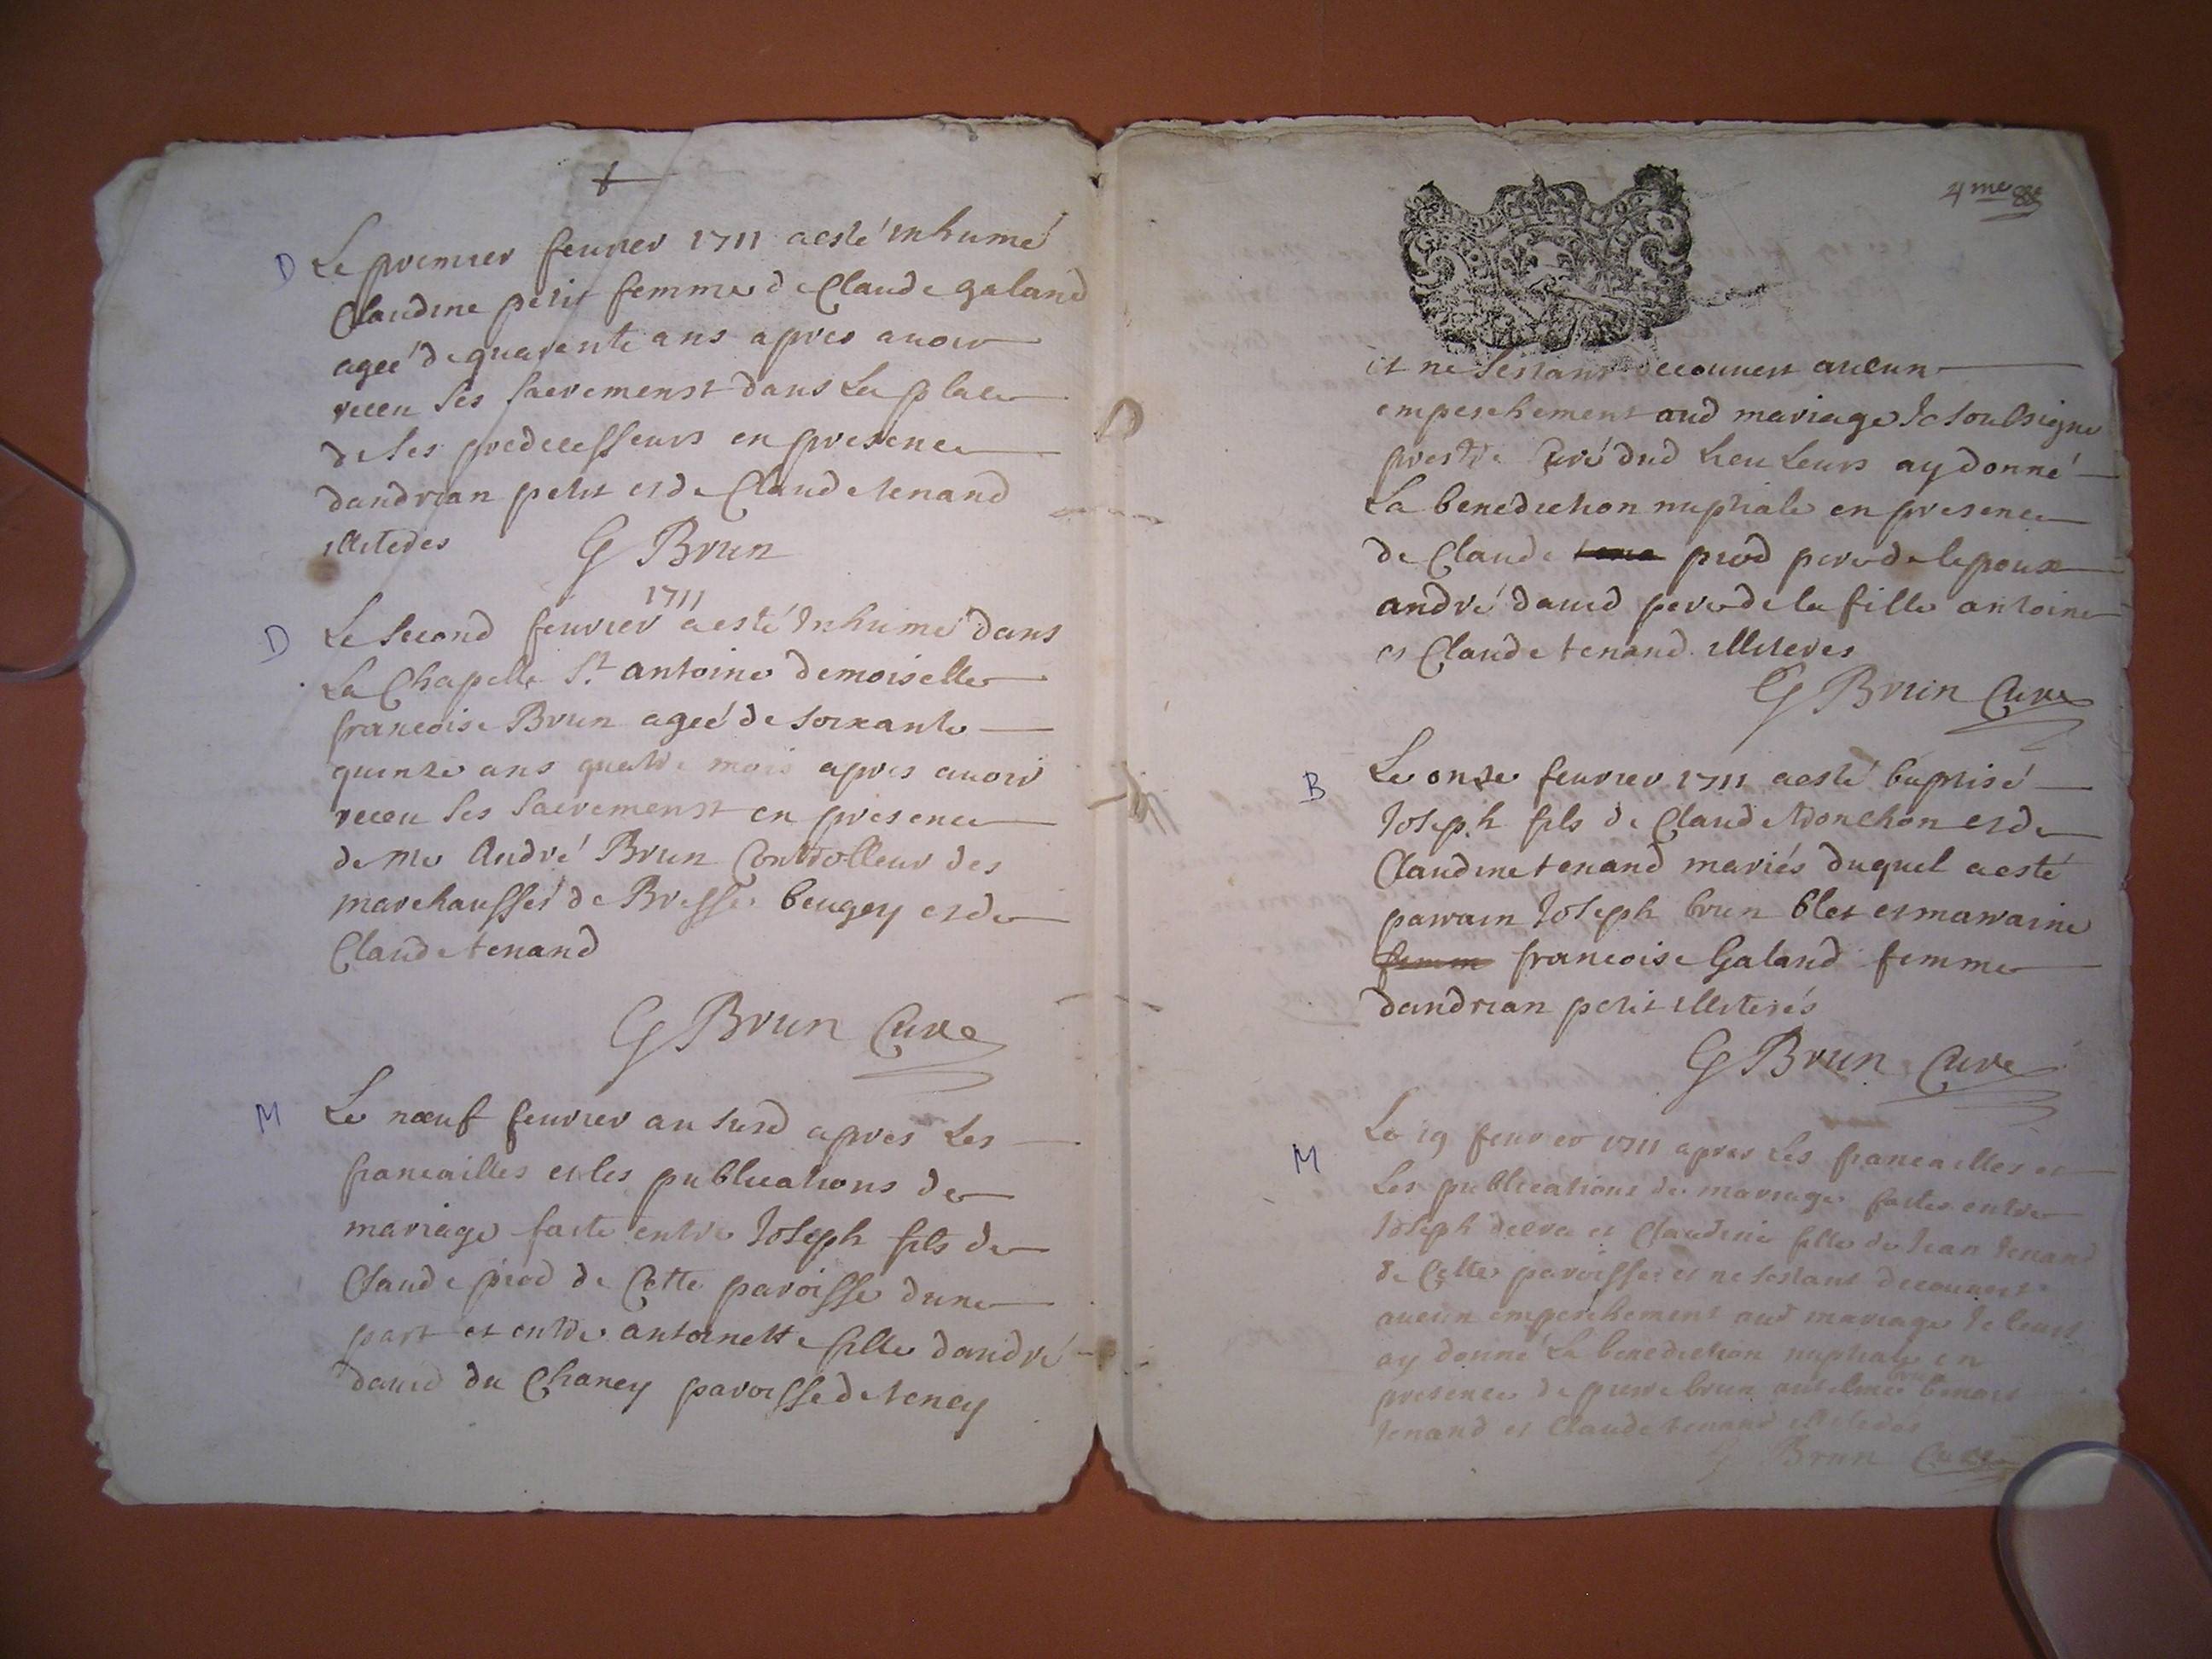 D Le premier feuvrier 1711 a esté inhumé
Claudine petit femme de Claude galand
ageé de quarente ans apres avoir
receu ses sacrementst dans La place
de ses predecesseurs en presence
dandrian petit et de Claude tenand
illiteres G Brun
1711
D Le second feuvrier a esté Inhumé dans
La Chapelle St. antoine demoiselle
francoise Brun ageé de soixante
quinze ans quatre mois apres avoir
receu ses sacrementst en presence
de Me André Brun Controlleur des
marchaussés de Bresse beugey et de
Claude tenand
G Brun Curé
M Le nœuf feuvrier an susd apres Les
francailles et les publications de
mariage faite entre Joseph fils de
Claude piod de Cette paroisse dune
part et entre antoinette fille dandré
david du Chaney paroisse de tenay
4me
et ne sestant decouvert aucun
empeschement aud mariage Je soubsigne
prestre Curé dud Lieu Leurs ay donné
La benediction nuptiale en presence
de Claude piod pere de lepoux
andré david pere de la fille antoine
et Claude tenand illiteres
G Brun Curé
B Le onze feuvrier 1711 a esté baptisé
Joseph fils de Claude Monchon et de
Claudine tenand mariés duquel a esté
parrain Joseph brun blet et marraine
femm francoise Galand femme
dandrian petit illiterés
G Brun Curé
M Le 19 feuvrier 1711 apres Les francailles et
Les publications de mariage faites entre
Joseph et Claudine fille de Jean tenand
de Cette paroisse et ne sestant decouvert
aucun empeschement aud mariage Je leurs
ay donné La benediction nuptiale en
presence de pierre brun antelme benoit
tenand et Claude tenand illiteres
G Brun Curé